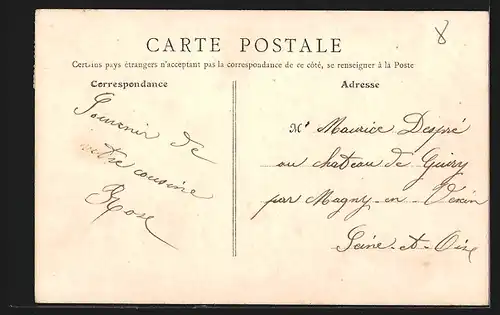 8
CARTE POSTALE
Certains pays étrangers n'acceptant pas la correspondance de ce côté, se renseigner à la Poste
Correspondance
Souvenir de
votre cousine
Rose
Adresse
Mr Maurice Despré
au chateau de Guiry
par Magny-en-Vexin
Seine-et-Oise